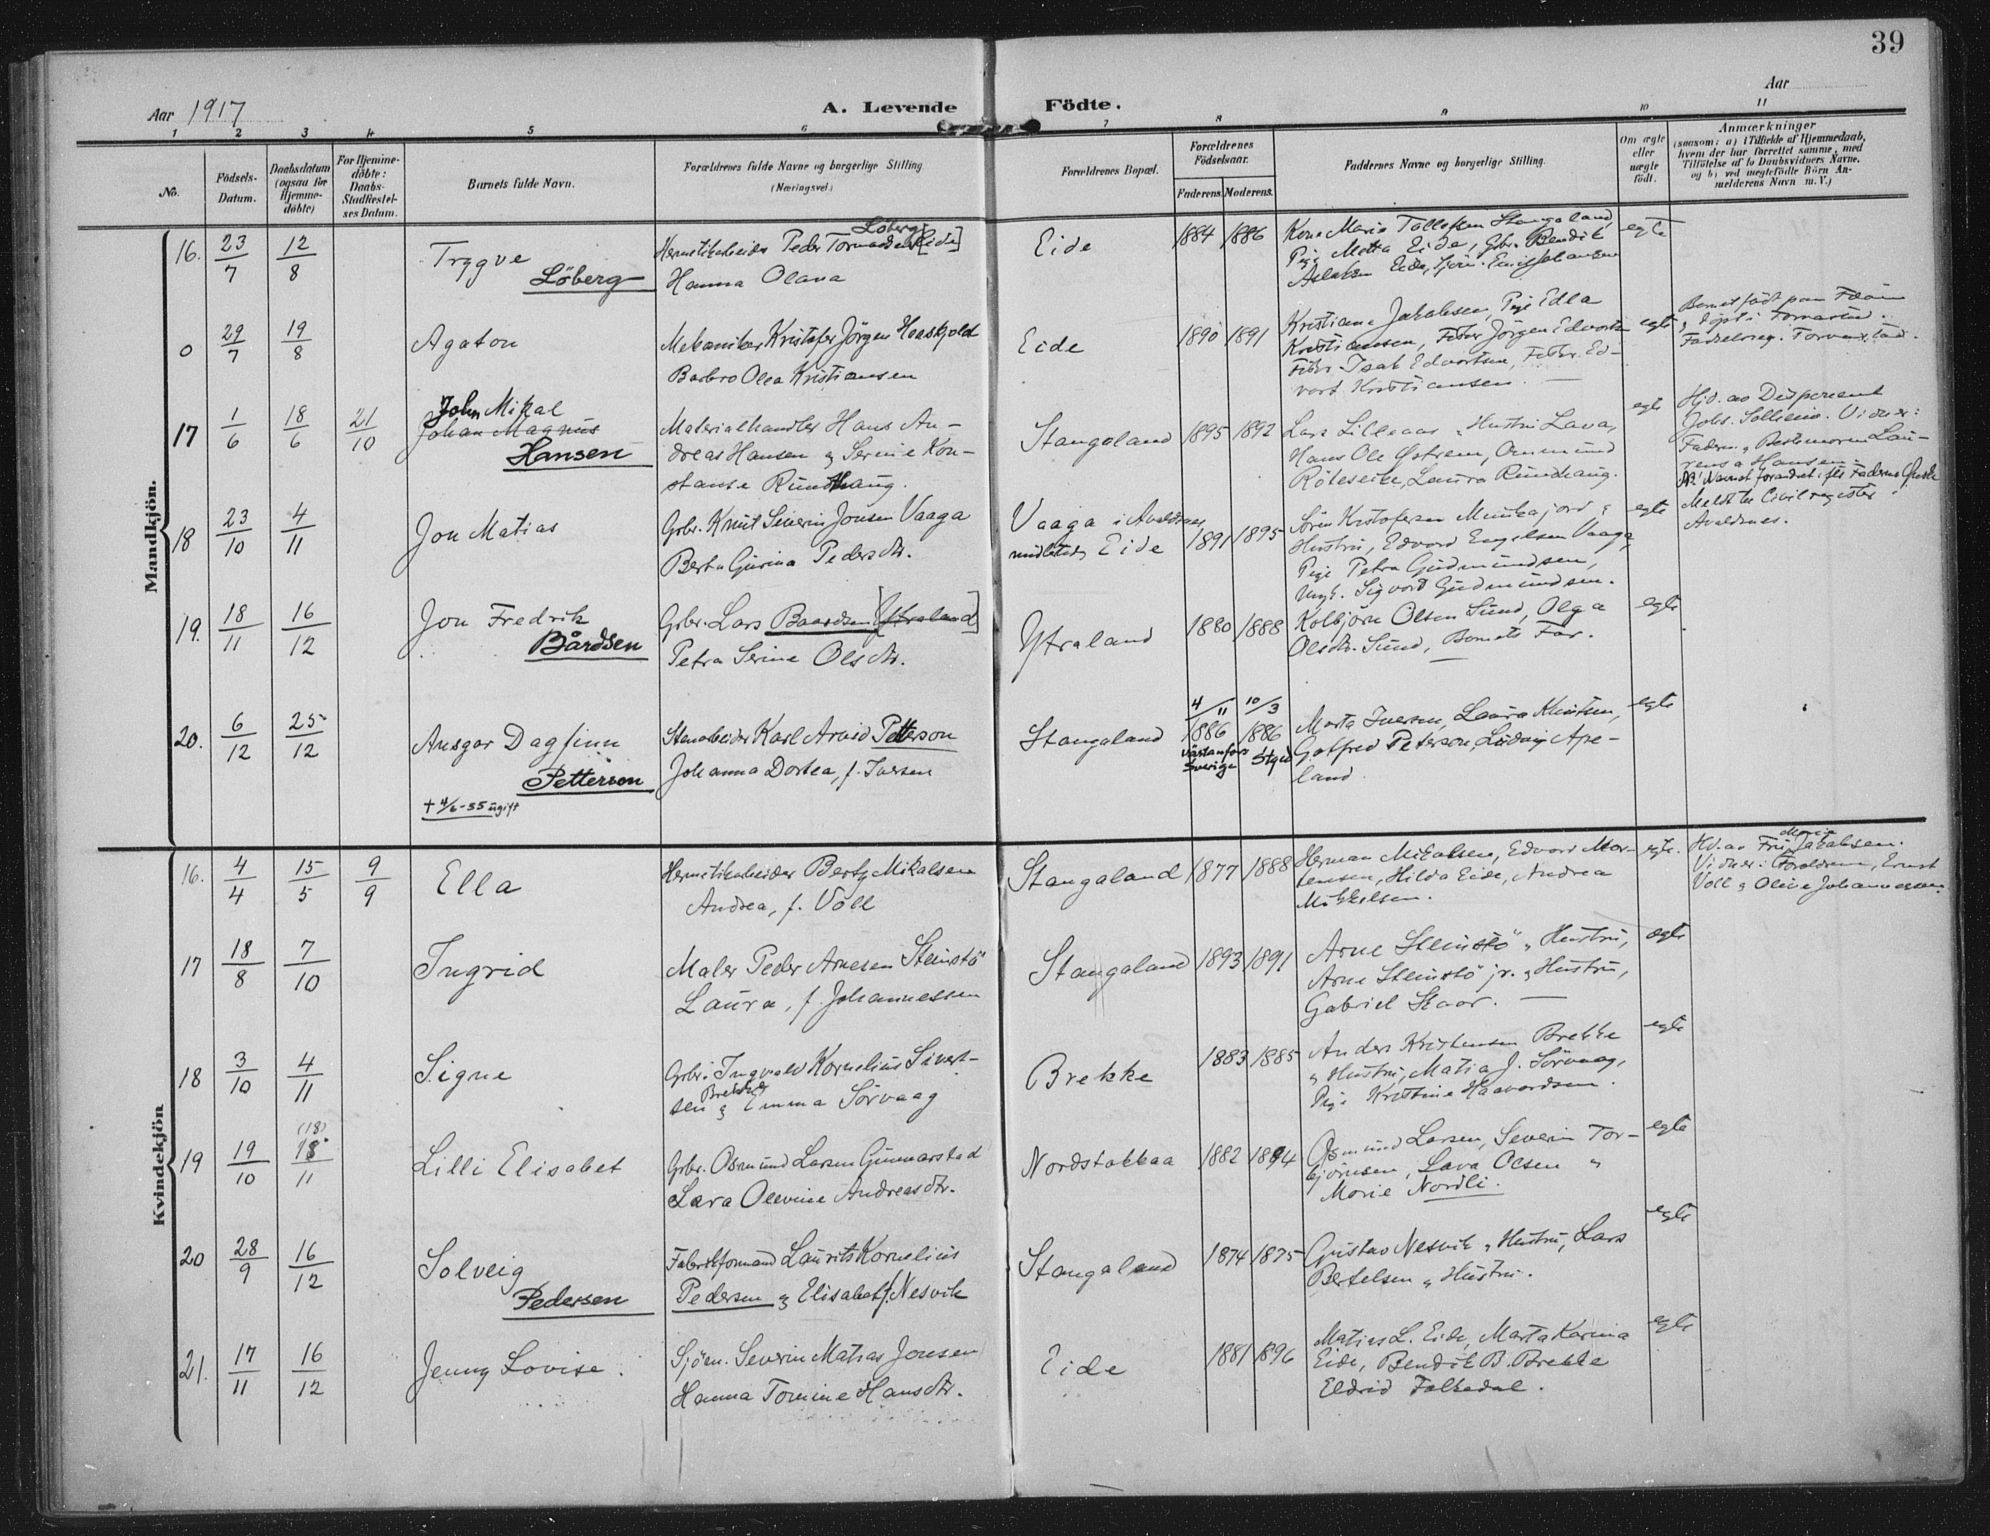 39
Aar 1917
A. Levende Födte.
Aar
1 2 3 4 5 6 7 8 9 10 11
No.
Födsels-Datum.
Daabsdatum (ogsaa for Hjemme-döbte)
For Hjemme-döbte: Daabs-Stadfæstel-ses Datum.
Barnets fulde Navn.
Forældrenes fulde Navne og borgerlige Stilling
(Næringsvei.)
Forældrenes Bopæl.
Forældrenes Födselsaar.
Faderens. Moderens.
Faddernes Navne og borgerlige Stilling.
Om ægte eller uægte födt.
Anmærkninger
(saasom: a) i Tilfælde af Hjemmedaab, hvem der har forrettet samme, med Tilföielse af to Daabsvidners Navne. og b) ved uægtefödte Börn An-melderens Navn m. V.)
Mandkjön.
16. 23/7 12/8 Trygve Löberg
Peder Löberg [Eide]
Hanna Olava
Eide 1884 1886
Kone Maria Tollefsen Stangeland,
Pige Metta Eide, Gbr. Bendik
Aslaksen Eide,
egte
0 29/7 19/8 Agaton
Mekaniker Kristofer Jörgen
Barbro Olea Kristiansen
Eide 1890 1891
Kristiane Jakobsen, Pige Edla
Kristiansen, Fisker Jörgen Edvartsen
Fisker Isak Edvartsen, Fisker Ed-
vart Kristiansen
egte
Barnet födt paa
döpt i
17 1/6 18/6 21/10 John Mikal
Johan Magnus
Hansen
Materialhandler Hans An-
dreas Hansen & Serine Kon-
stanse Rundhaug.
Stangaland 1895 1892
Lars Lilleaas & Hustru Lava,
Hans Ole Östrem,
Laura Rundhaug.
egte
Hjd. av
Vidner:
Faderen & Bestemoren Lau-
rensa Hansen
18 23/10 4/11 Jon Matias
Gbr. Knut Severin Jonsen Vaaga
Berta Gurina Pedersdtr.
Vaaga i Avaldsnes
midlertid. Eide 1891 1895
Sören Kristofersen &
Hustru, Edvard Engelsen Vaaga,
Pige Petra Gudmundsen,
Ungk. Sigvard Gudmundsen.
egte
Meldt til Civilregister i
Avaldsnes.
19. 18/11 16/12 Jon Fredrik
Bårdsen
Gbr. Lars Baardsen [Ytraland]
Petra Serine Olsdtr.
Ytraland 1880 1888
Kolbjörn Olsen Sund, Olga
Olsdtr. Sund, Barnets Far.
egte
20. 6/12 25/12 Ansgar Dagfinn
Petterson
+ 4/6-55 ugift
Stenarbeider Karl Arvid Petterson
Johanna Dortea, f. Iversen
Stangaland 4/11 1886 Västanfors Sverige 10/3 1886
Marta Iversen, Laura Knutsen,
Gotfred Peterson, Ludvig Ape-
land.
egte
Kvindekjön
16. 4/4 15/5 9/9 Ella
Hermetikarbeider Berty Mikalsen
Andrea, f. Voll
Stangaland 1877 1888
Herman Mikalsen, Edvard Mor-
tensen, Hilda Eide, Andrea
Mikkelsen.
egte.
Hd. av Fru Maria Jakobsen.
Vidner: Foreldrene, Ernst
Voll & Olive Johannessen.
17 18/8 7/10 Ingrid
Maler Peder Arnesen Stenstö
Laura, f. Johannessen
Stangaland 1893 1891
Arne Steinstö & Hustru,
Arne Steinstö jr. & Hustru,
Gabriel Skaar.
egte
18 3/10 4/11 Signe
Gbr. Ingvald Kornelius Sivert-
sen Brekke & Emma Sörvaag
Brekke 1883 1885
Anders Kristensen Brekke
& Hustru, Matia J. Sörvaag,
Pige Kristine Haavardsen.
egte
19 19/10 (18) 18/11 Lilli Elisabet
Gbr. Osmund Larsen Gunnarstad
Lara Olevine Andreasdtr.
Nordstokkaa 1882 1894
Osmund Larsen, Severin Tor-
björnsen, Lava Olsen &
Marie Nordli.
egte
20 28/9 16/12 Solveig
Pedersen
Fabrikformand Laurits Kornelius
Pedersen & Elisabet f. Nesvik
Stangaland 1874 1875
Gustav Nesvik & Hustru, Lars
Bertelsen & Hustru.
egte
21. 17/11 16/12 Jenny Lovise.
Sjöm. Severin Matias Jonsen
Hanna Tomine Hansdtr.
Eide 1881 1896
Matias L. Eide, Marta Karina
Eide, Bendik B. Brekke
Eldrid Falkedal.
egte